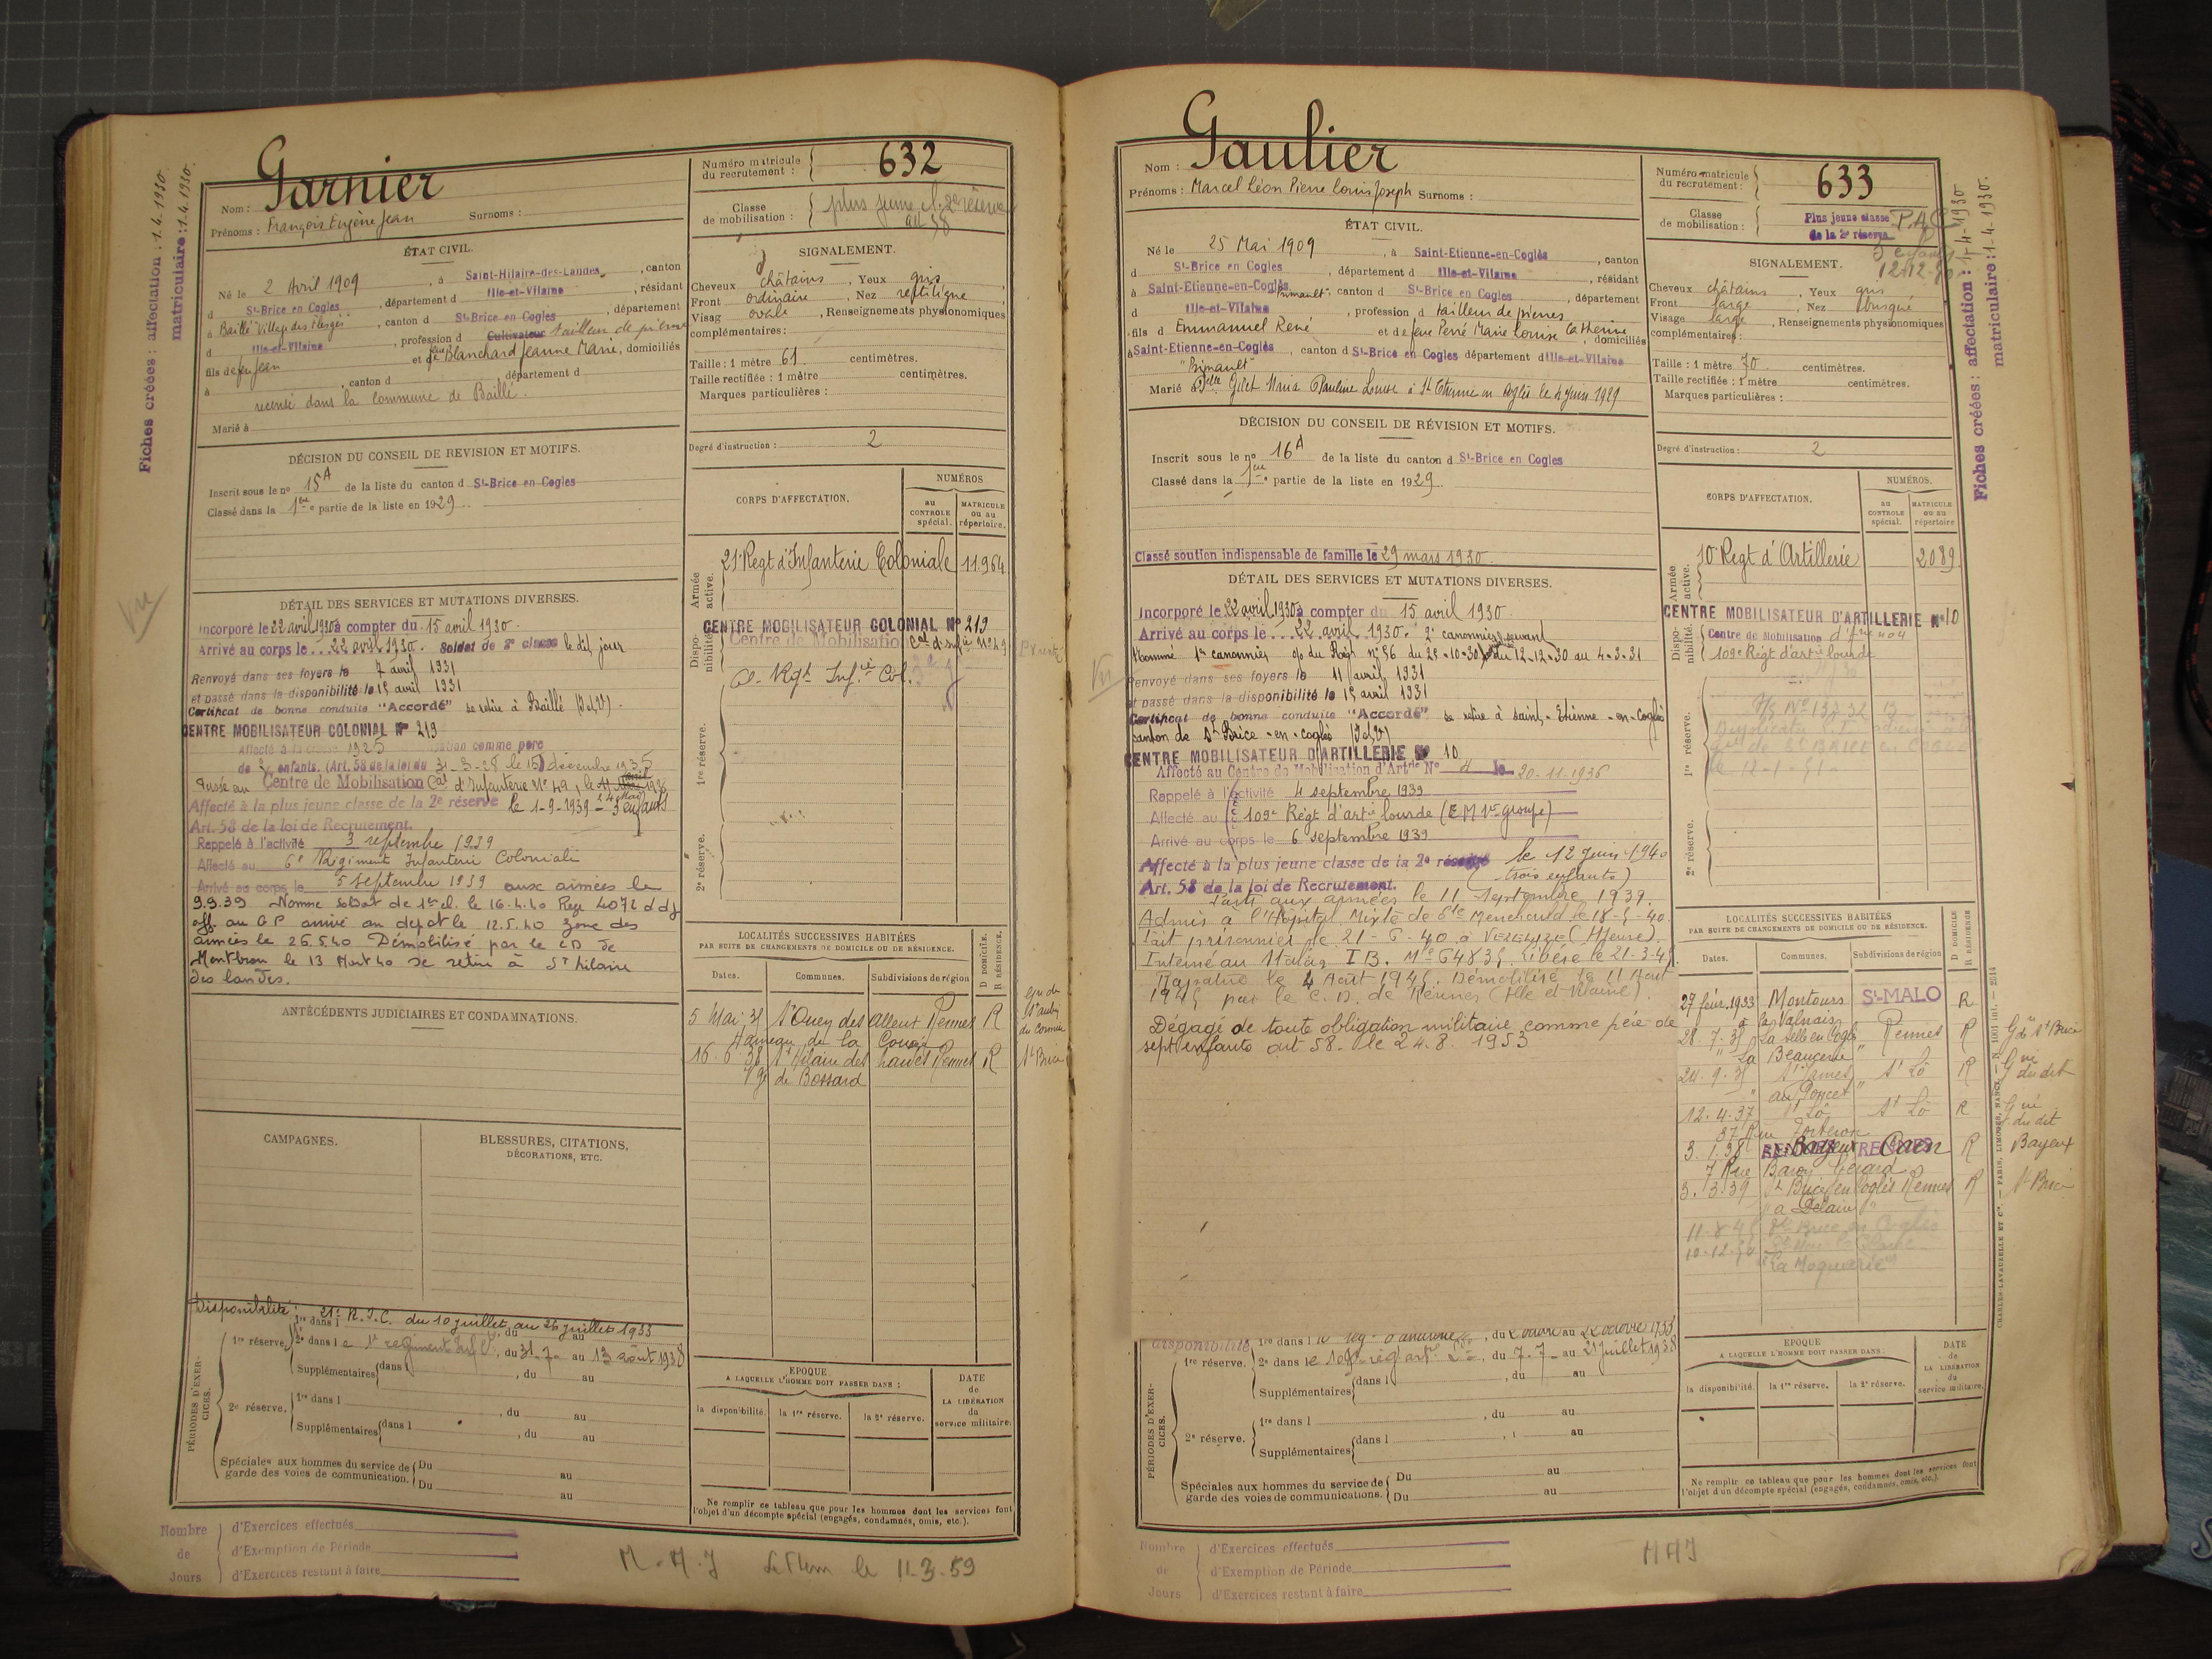 Fiches créées : affectation : 1.4.1930.
matriculaire : 1.4.1930.
Nom : Garnier
Prénoms : François Eugène Jean Surnoms :
Numéro matricule du recrutement : 632
Classe de mobilisation : plus jeune cl. 2e réserve
art 58
ÉTAT CIVIL.
Né le 2 Avril 1909, à Saint-Hilaire-des-Landes, canton
d St-Brice en Cogles, département d Ille-et-Vilaine, résidant
à Baillé Village des, canton d St-Brice en Cogles, département
d Ille-et-Vilaine, profession d Cultivateur tailleur de pierre
fils de feu Jean et de feue Blanchard Jeanne Marie, domiciliés
à , canton d département d
recensé dans la commune de Baillé.
Marié à
SIGNALEMENT.
Cheveux châtains, Yeux gris,
Front ordinaire, Nez rectiligne,
Visag ovale, Renseignements physionomiques
complémentaires :
Taille : 1 mètre 61 centimètres.
Taille rectifiée : 1 mètre centimètres.
Marques particulières :
Degré d'instruction : 2
DÉCISION DU CONSEIL DE REVISION ET MOTIFS.
Inscrit sous le no 15A de la liste du canton d St-Brice en Cogles
Classé dans la 1ère partie de la liste en 1929.
CORPS D'AFFECTATION.
NUMÉROS
au CONTROLE spécial.
MATRICULE ou au répertoire.
Armée active.
21e Regt d'Infanterie Coloniale 11.964
Disponibilité.
CENTRE MOBILISATEUR COLONIAL No 219
Centre de Mobilisation Cal d'Infie No 49
Rgt Infie Col.
1re réserve.
2e réserve.
Vu
DÉTAIL DES SERVICES ET MUTATIONS DIVERSES.
Incorporé le 22 avril 1930 à compter du 15 avril 1930.
Arrivé au corps le 22 avril 1930. Soldat de 2e classe le dit jour
Renvoyé dans ses foyers le 7 avril 1931
et passé dans la disponibilité le 15 avril 1931
Certificat de bonne conduite "Accordé" se retire à Baillé (I et V).
CENTRE MOBILISATEUR COLONIAL No 219
Affecté à la classe 1925 mobilisation comme père
de 2 enfants. (Art. 58 de la loi du 31-3-28 le 15 décembre 1935
Passé au Centre de Mobilisation Cal d'Infanterie No 49, le
Affecté à la plus jeune classe de la 2e réserve le 1-9-1939 - 3 enfants
Art. 58 de la loi de Recrutement.
Rappelé à l'activité 3 septembre 1939
Affecté au 6e Régiment Infanterie Coloniale
Arrivé au corps le 5 septembre 1939 aux armées le
9.9.39 Nommé soldat de 1re cl. le 16.4.40 Rege 4072 d dj
aff. au GP arrivé au depot le 12.5.40 zone des
armées le 26.5.40 Démobilisé par le CD de
Montbron le 13 Aout 40 se retire à St hilaire
des landes.
ANTÉCÉDENTS JUDICIAIRES ET CONDAMNATIONS.
CAMPAGNES.
BLESSURES, CITATIONS, DÉCORATIONS, ETC.
LOCALITÉS SUCCESSIVES HABITÉES
PAR SUITE DE CHANGEMENTS DE DOMICILE OU DE RÉSIDENCE.
Dates. Communes. Subdivisions de région D DOMICILE. R RÉSIDENCE.
5 Mai 31 St Ouen des Alleux Rennes R
Hameau de la
16 6 38 St Hilaire des Landes Rennes R St Brice
Vge de Bossard
PÉRIODES D'EXERCICES.
Disponibilité : 21e R.I.C. du 10 juillet au 26 juillet 1933
1re réserve. 2e dans le 1er régiment Inf. Cle, du 31-7 au 13 août 1938
Supplémentaires dans l , du au
2e réserve. 1re dans l , du au
Supplémentaires dans l , du au
Spéciales aux hommes du service de garde des voies de communication. Du au
Du au
EPOQUE
A LAQUELLE L'HOMME DOIT PASSER DANS :
la disponibilité. la 1re réserve. la 2e réserve.
DATE de LA LIBÉRATION du service militaire.
Ne remplir ce tableau que pour les hommes dont les services font
l'objet d'un décompte spécial (engagés, condamnés, omis, etc.).
Nombre de Jours
d'Exercices effectués
d'Exemption de Période
d'Exercices restant à faire
M.A.J le 11-3-59
Nom : Gaulier
Prénoms : Marcel Léon Pierre Louis Joseph Surnoms :
Numéro matricule du recrutement : 633
Classe de mobilisation : Plus jeune classe de la 2e réserve
Fiches créées : affectation : 1-4-1930
matriculaire : 1-4-1930.
ÉTAT CIVIL.
Né le 25 Mai 1909, à Saint-Etienne-en-Coglès, canton
d St-Brice en Cogles, département d Ille-et-Vilaine, résidant
à Saint-Etienne-en-Coglès "Primault", canton d St-Brice en Cogles, département
d Ille-et-Vilaine, profession d tailleur de pierres
fils d Emmanuel René et de feue Perré Marie Louise Catherine, domiciliés
à Saint-Etienne-en-Coglès, canton d St-Brice en Cogles département d Ille-et-Vilaine
"Primault"
Marié à Delle Gilet Maria Pauline Louise à St Etienne en Coglès le 4 juin 1929
SIGNALEMENT.
Cheveux châtains, Yeux gris
Front large, Nez busqué
Visage large, Renseignements physionomiques
complémentaires :
Taille : 1 mètre 70 centimètres.
Taille rectifiée : 1 mètre centimètres.
Marques particulières :
Degré d'instruction : 2
DÉCISION DU CONSEIL DE RÉVISION ET MOTIFS.
Inscrit sous le no 16A de la liste du canton d St-Brice en Cogles
Classé dans la 1ère partie de la liste en 1929.
Classé soutien indispensable de famille le 29 mars 1930.
CORPS D'AFFECTATION.
NUMÉROS.
au CONTROLE spécial.
MATRICULE ou au répertoire
Armée active.
10 Regt d'Artillerie 2089
Disponibilité.
CENTRE MOBILISATEUR D'ARTILLERIE No 10
Centre de Mobilisation d'Arie No 4
109e Régt d'artie lourde
1re réserve.
2e réserve.
Vu
DÉTAIL DES SERVICES ET MUTATIONS DIVERSES.
Incorporé le 22 avril 1930 à compter du 15 avril 1930.
Arrivé au corps le 22 avril 1930. 2e canonnier servant
Nommé 1er canonnier o/o du Régt no 56 du 25-10-30 du 12-12-30 au 4-3-31
Renvoyé dans ses foyers le 11 avril 1931
et passé dans la disponibilité le 15 avril 1931
Certificat de bonne conduite "Accordé" se retire à Saint-Etienne-en-Coglès
canton de St Brice-en-Coglès (I et V)
CENTRE MOBILISATEUR D'ARTILLERIE No 10
Affecté au Centre de Mobilisation d'Artie No 4 le 20-11-1936
Rappelé à l'activité 4 septembre 1939
Affecté au 109e Régt d'artie lourde (E M Ve groupe)
Arrivé au corps le 6 septembre 1939
Affecté à la plus jeune classe de la 2e réserve le 12 Juin 1940
Art. 58 de la loi de Recrutement. (trois enfants)
Parti aux armées le 11 Septembre 1939.
Admis à l'Hôpital Mixte de Ste Menehould le 18-5-40.
Fait prisonnier le 21-6-40 à Vezelize (Meuse).
Interné au Stalag I B. Mle 6483. Libéré le 21-3-45.
Rapatrié le 4 Août 1945. Démobilisé le 11 Aout
1945 par le C.D. de Rennes (Ille et Vilaine).
Dégagé de toute obligation militaire comme père de
sept enfants art 58. le 24.8.1953
LOCALITÉS SUCCESSIVES HABITÉES
PAR SUITE DE CHANGEMENTS DE DOMICILE OU DE RÉSIDENCE.
Dates. Communes. Subdivisions de région D DOMICILE R RÉSIDENCE.
27 févr. 1933 Montours St-MALO R
à la Valnais
28.7.35 La Selle en Coglès Rennes R Gie de St Brice
"La Beaucerie"
20.9.35 St James St Lô R Gie du dit
"au Poncet"
12.4.37 St Lô St Lô R Gie du dit
37 Rue Torteron
3.1.38 Bayeux Caen R Bayeux
7 Rue Baron Gérard
3.3.39 St Brice en Coglès Rennes R St Brice
11-8-45 St Brice en Coglès
PÉRIODES D'EXERCICES.
disponibilité 1re dans l
1re réserve. 2e dans le 109e rég art. Lde, du 7-7 au 21 juillet 1938
Supplémentaires dans l , du au
2e réserve. 1re dans l , du au
Supplémentaires dans l au
Spéciales aux hommes du service de garde des voies de communications. Du au
Du au
EPOQUE
A LAQUELLE L'HOMME DOIT PASSER DANS :
la disponibilité. la 1re réserve. la 2e réserve.
DATE de LA LIBÉRATION du service militaire.
Ne remplir ce tableau que pour les hommes dont les services font
l'objet d'un décompte spécial (engagés, condamnés, omis, etc.).
CHARLES-LAVAUZELLE ET Cie. — PARIS, LIMOGES, NANCY.
Nombre de Jours
d'Exercices effectués
d'Exemption de Période
d'Exercices restant à faire
MAJ